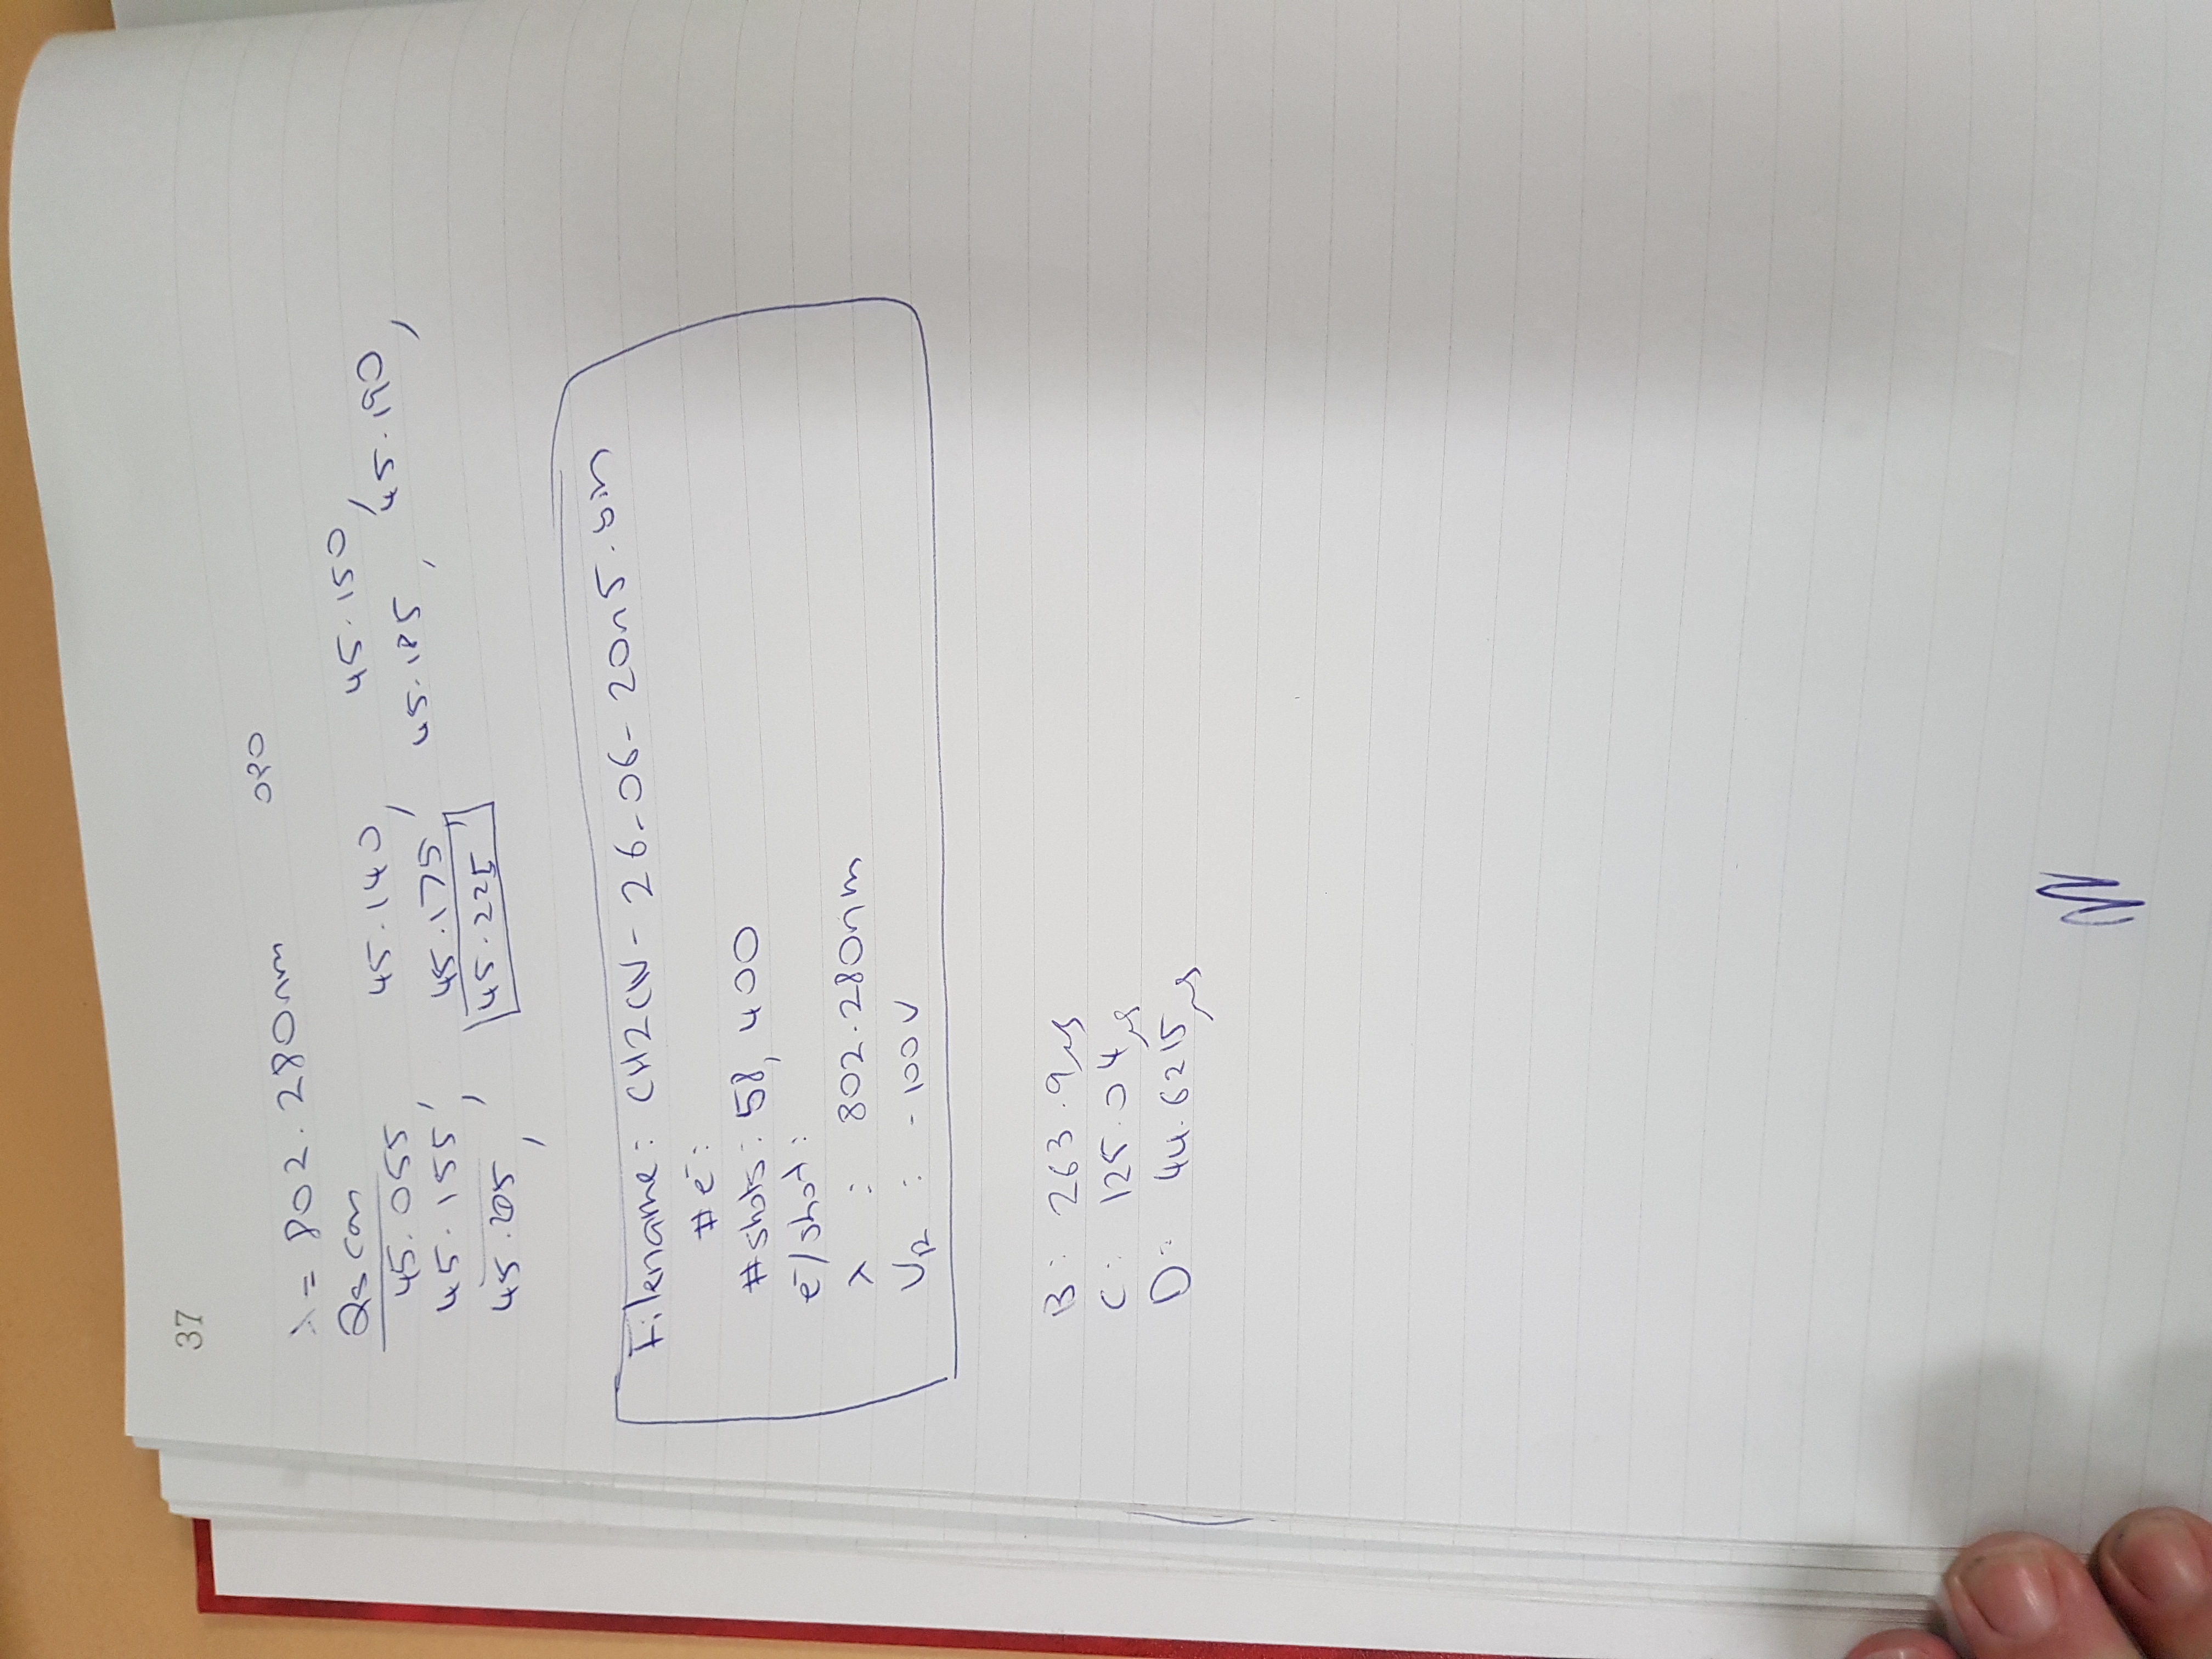 37
λ = 802.280nm OPO
Qscan
45.055, 45.140, 45.150,
45.155, 45.175, 45.185, 45.190,
45.205, 45.225
Filename: CH2CN-26-06-20n5.bin
#e⁻:
#shots: 58,400
e⁻/shot:
λ : 802.280nm
VR : -100V
B: 263.9μs
C: 125.04μs
D: 44.6215μs